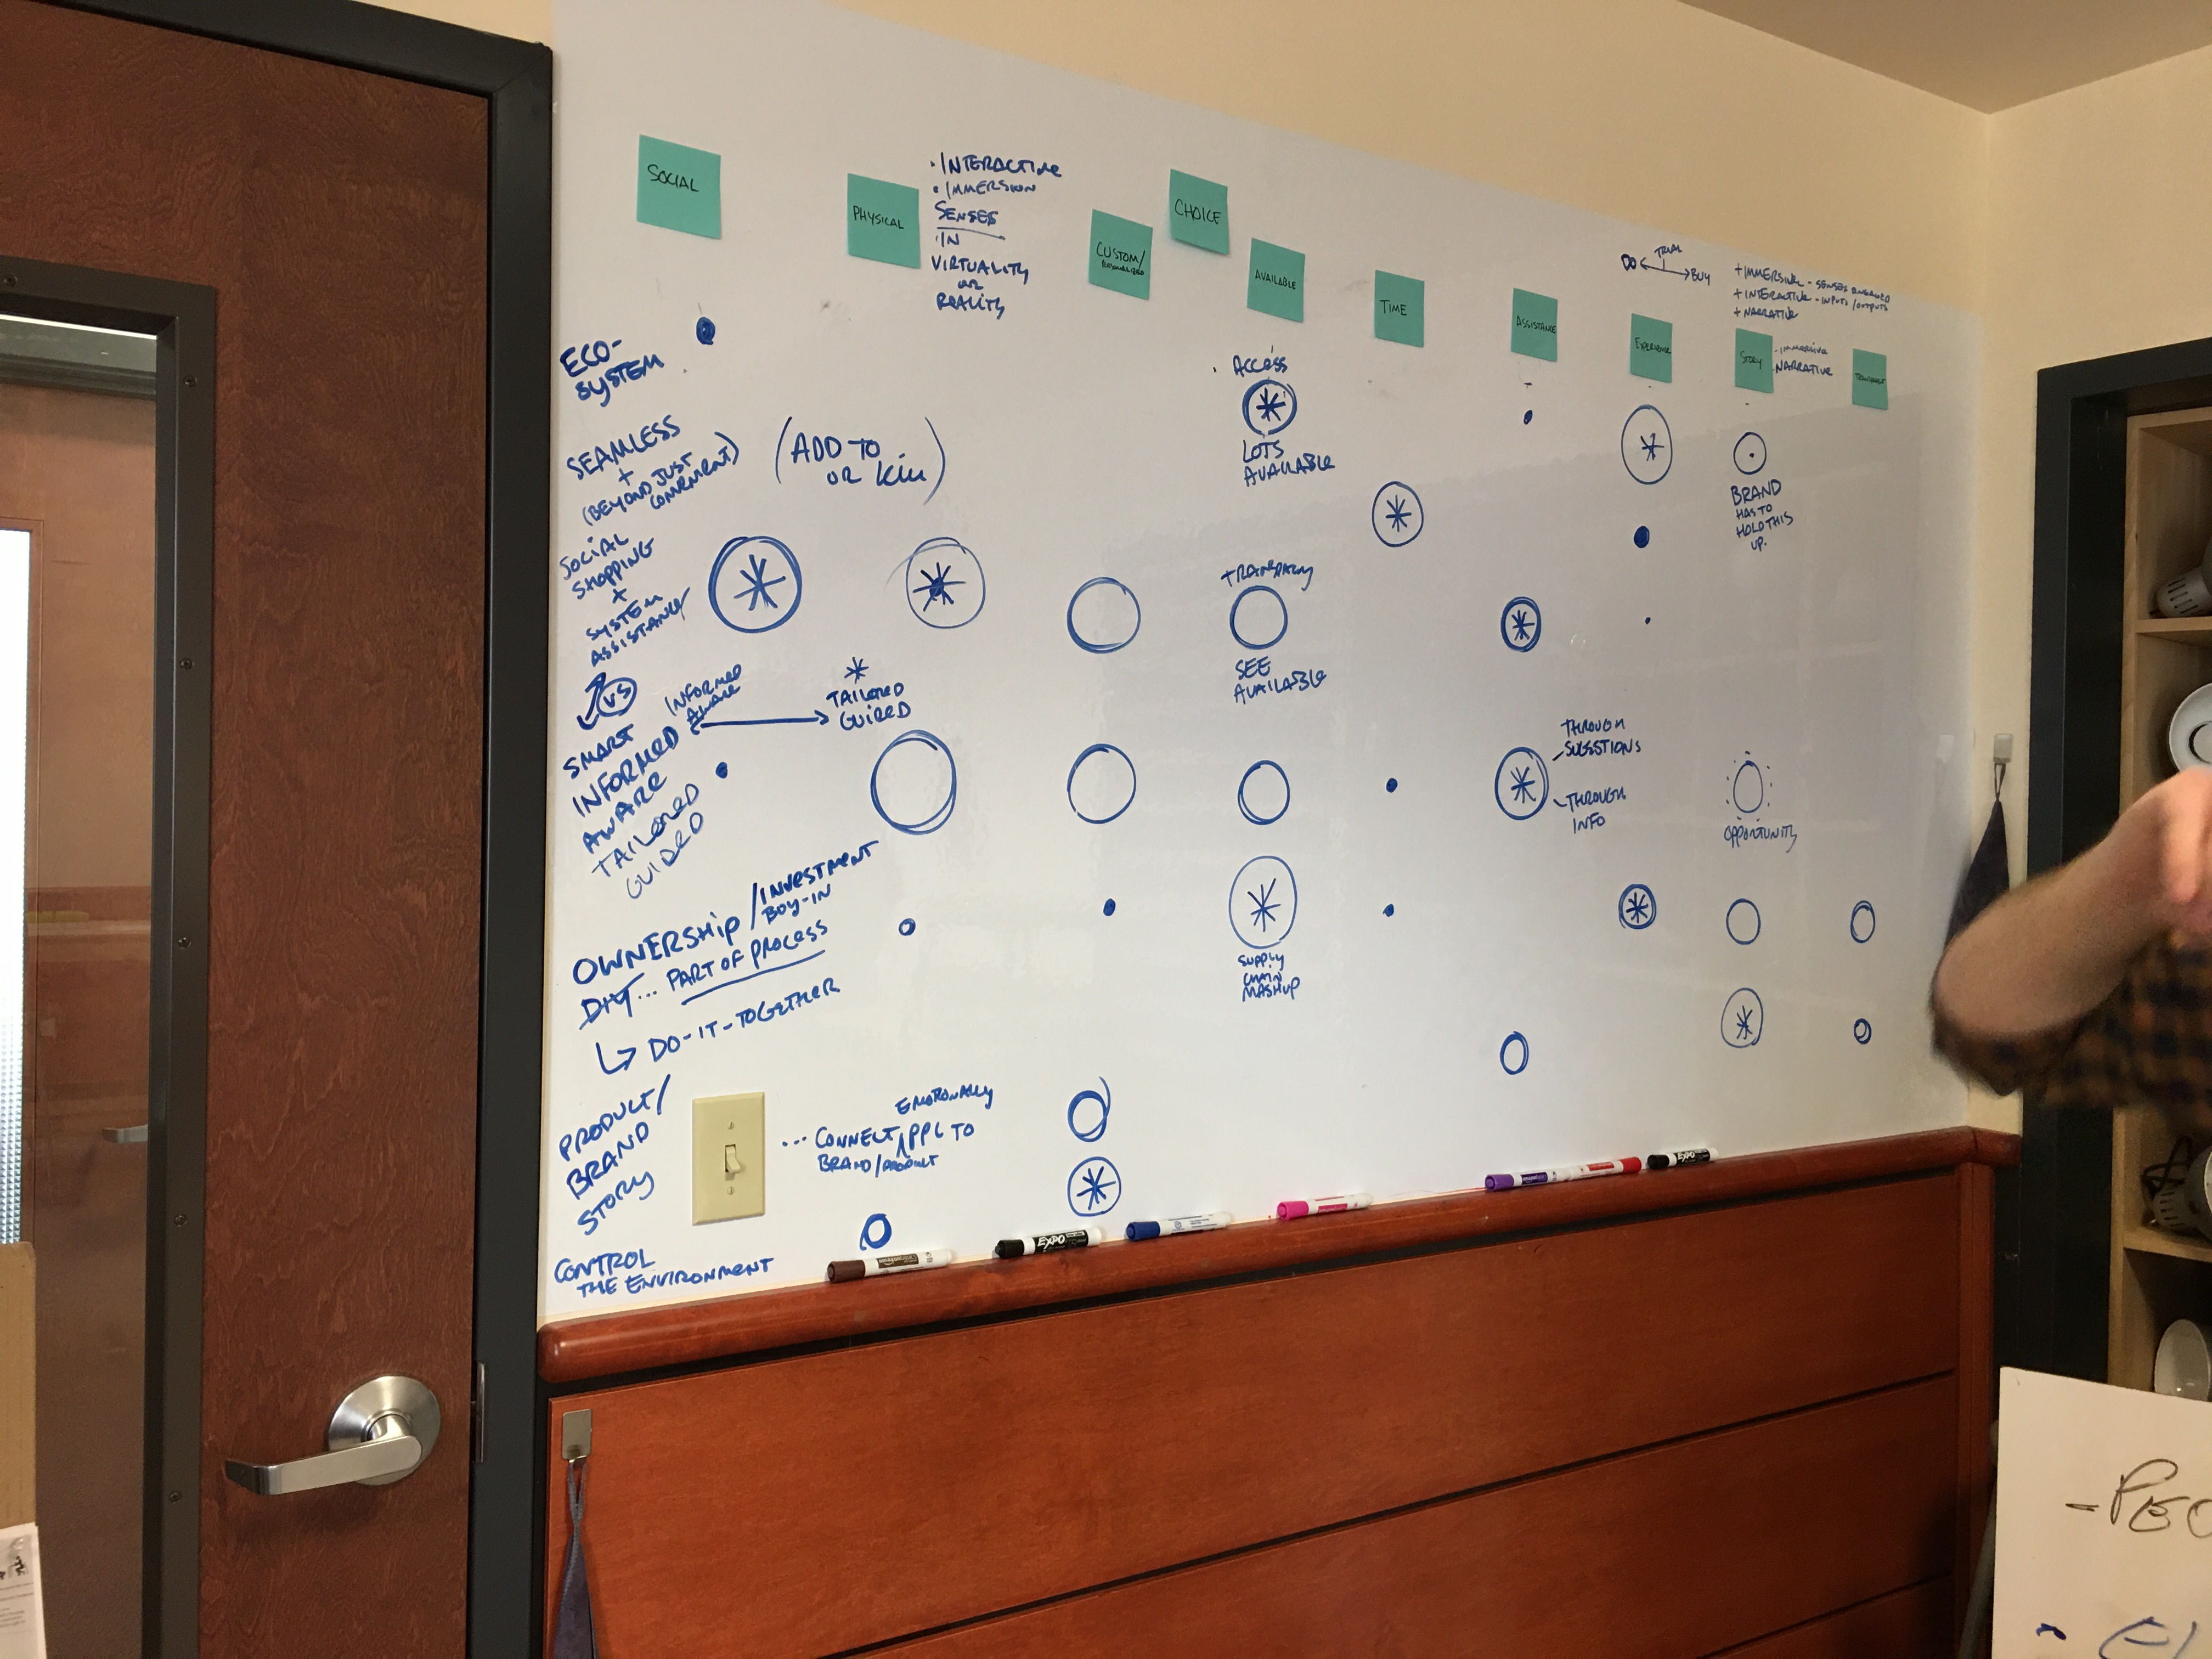 SOCIAL
PHYSICAL
· INTERACTIVE
· IMMERSION
SENSES
IN
VIRTUALITY
OR
REALITY
CUSTOM/
PERSONALIZED
CHOICE
AVAILABLE
TIME
ASSISTANCE
TRIAL
DO BUY
EXPERIENCE
+ IMMERSIVE - SENSES ENGAGED
+ INTERACTIVE - INPUTS/OUTPUTS
+ NARRATIVE
STORY
- IMMERSIVE
NARRATIVE
ECO-
SYSTEM
ACCESS
LOTS
AVAILABLE
SEAMLESS
+
(BEYOND JUST
CONVENIENT)
(ADD TO
OR KILL)
BRAND
HAS TO
HOLD THIS
UP.
SOCIAL
SHOPPING
+
SYSTEM
ASSISTANCE
TRANSPARENCY
SEE
AVAILABLE
VS
INFORMED
AWARE
TAILORED
GUIDED
SMART
INFORMED
AWARE
TAILORED
GUIDED
THROUGH
SUGGESTIONS
THROUGH
INFO
OPPORTUNITY
OWNERSHIP/INVESTMENT
BUY-IN
DIY... PART OF PROCESS
DO-IT-TOGETHER
SUPPLY
CHAIN
MASHUP
PRODUCT/
BRAND
STORY
EMOTIONALLY
... CONNECT PPL TO
BRAND/PRODUCT
CONTROL
THE ENVIRONMENT
EXPO
EXPO